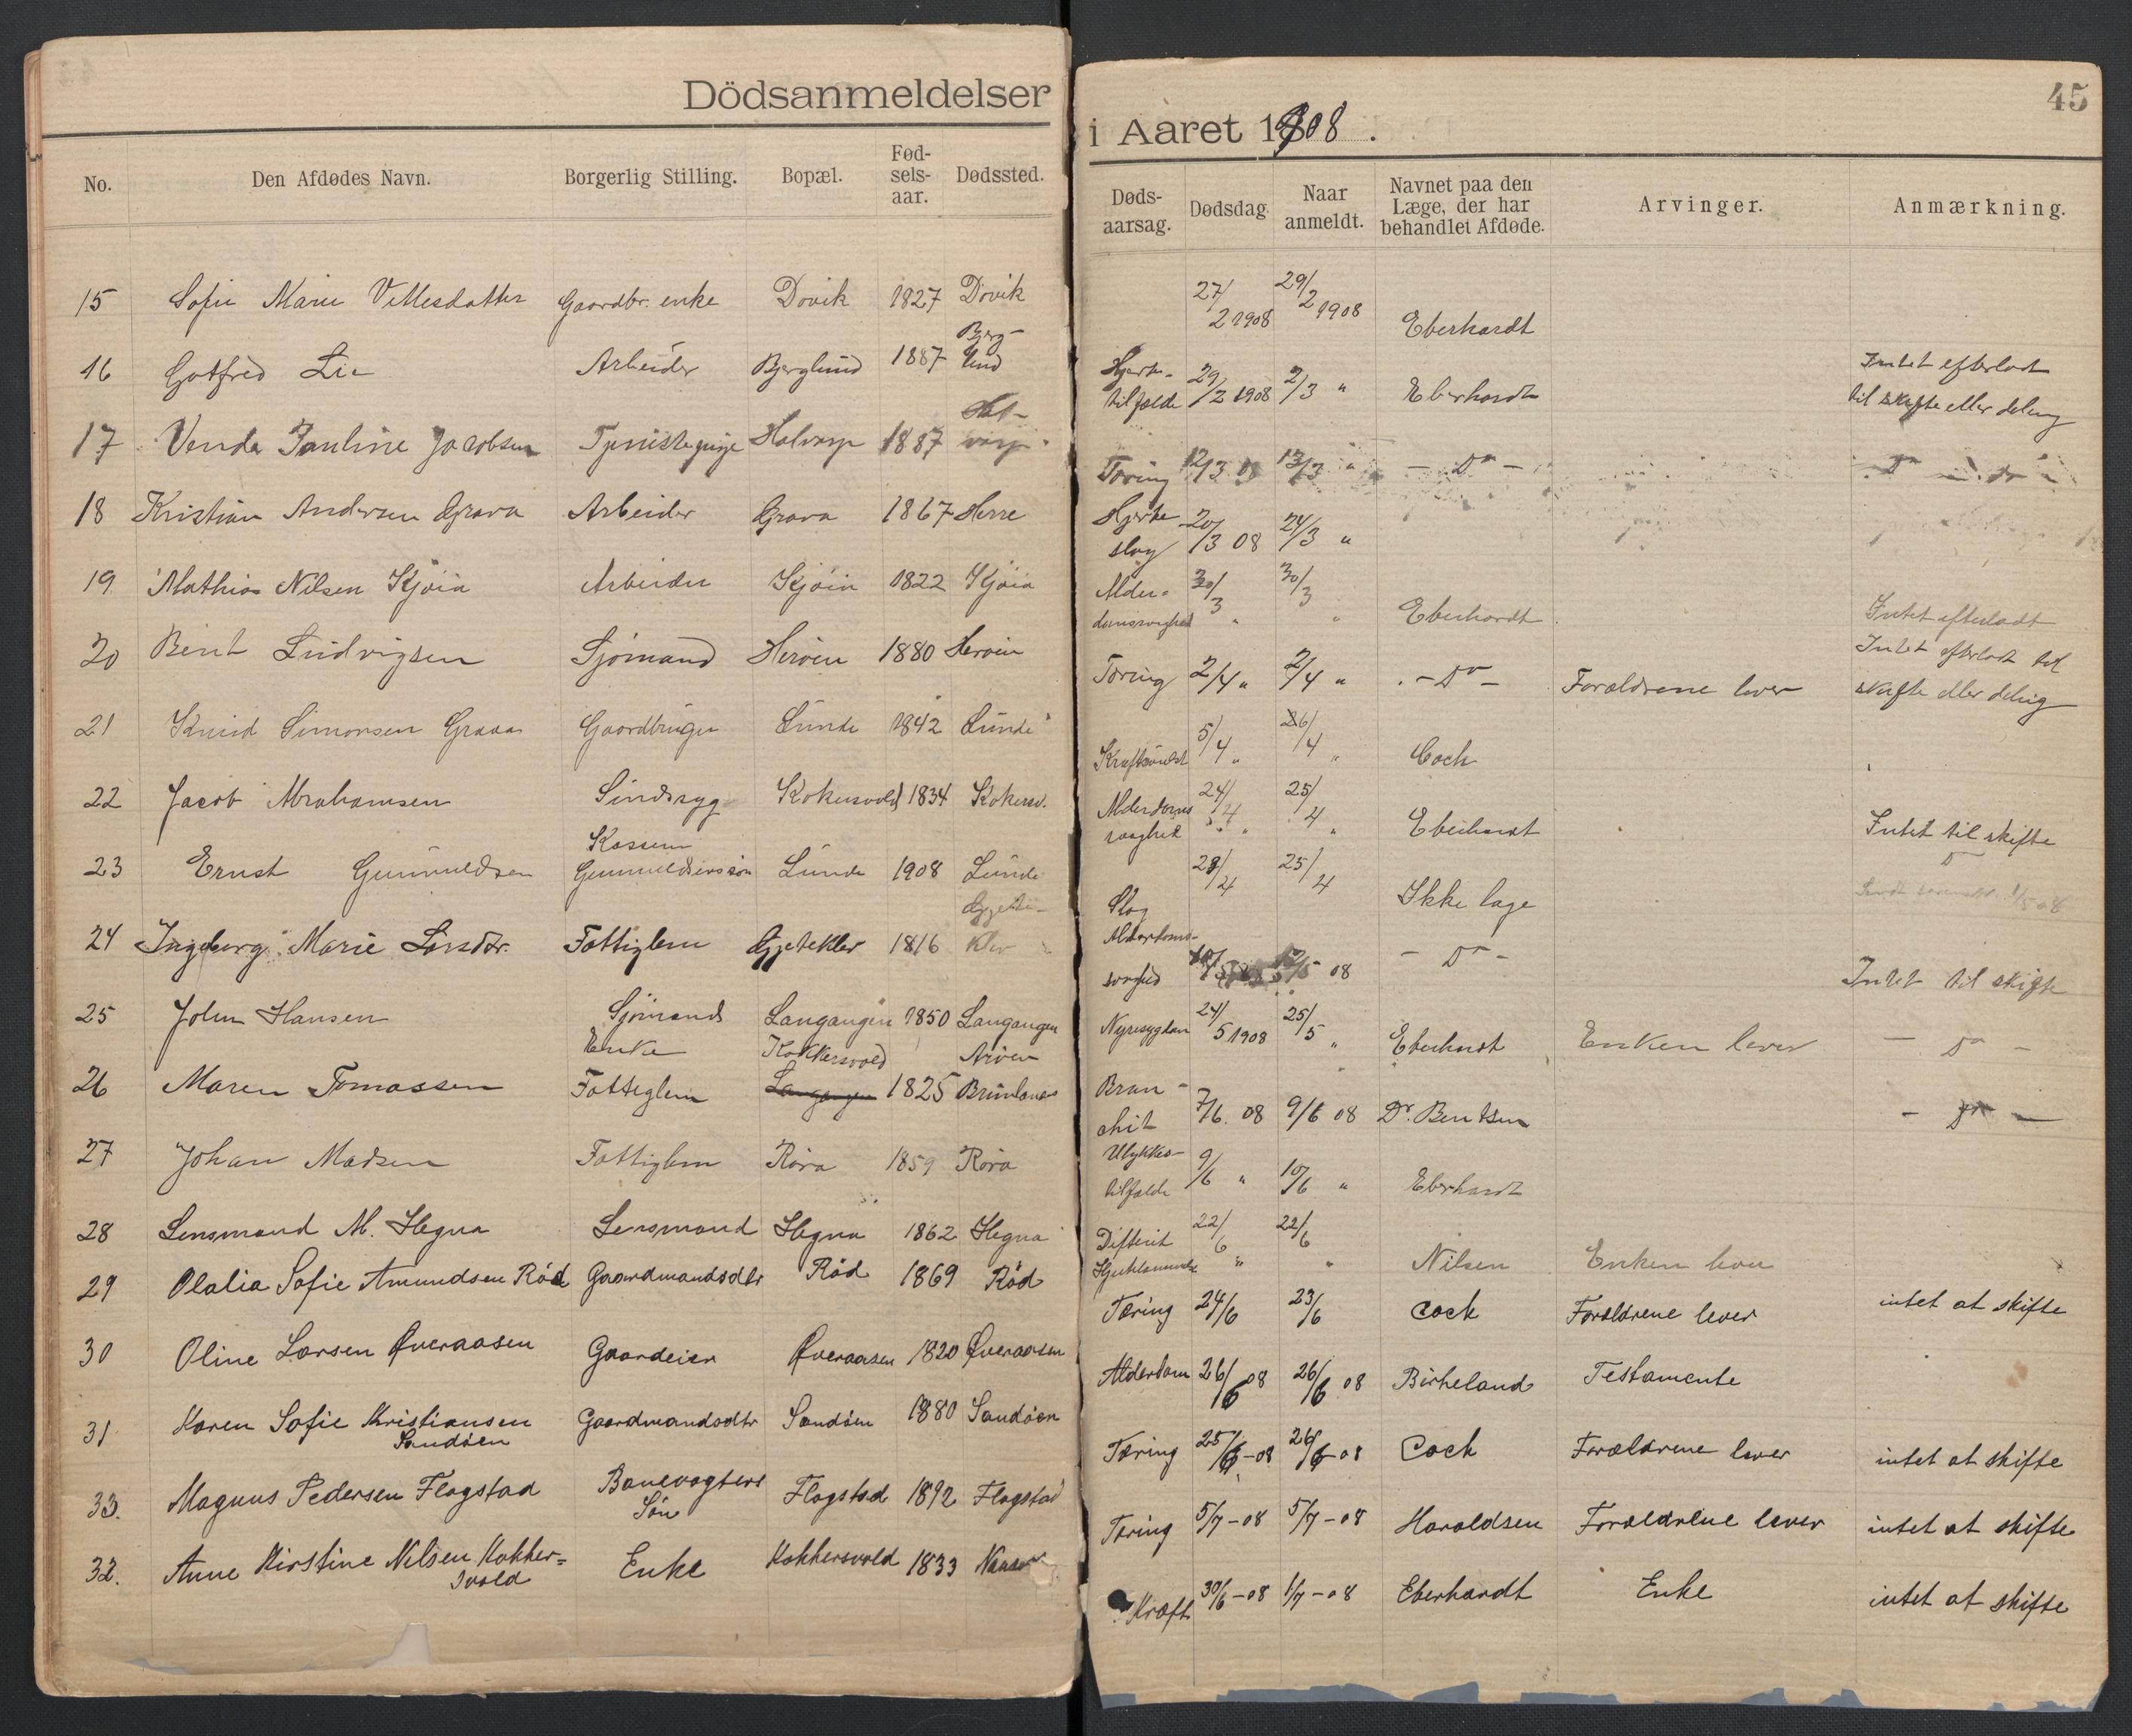 Dödsanmeldelser
i Aaret 1908.
45
No. Den Afdødes Navn. Borgerlig Stilling. Bopæl. Fød-sels-aar. Dødssted. Døds-aarsag. Dødsdag. Naar anmeldt. Navnet paa den Læge, der har behandlet Afdøde. Arvinger. Anmærkning.
15 Sofie Marie Villesdatter Gaardbr. enke Dovik 1827 Dovik 27/2 1908 29/2 1908 Eberhardt
16 Gotfred Lie Arbeider Bjerglund 1887 Berg-lund Hjerte-tilfælde 29/2 1908 2/3 " Eberhardt Intet efterladt til skifte eller deling
17 Venda Pauline Jacobsen Tjenistepige 1887 Tæring 12/3 08 13/3 " - Do - Do
18 Kristian Andersen Grava Arbeider Grava 1867 Herre Hjerte-slag 20/3 08 24/3 "
19 Mathias Nilsen Kjöia Arbeider Kjöia 1822 Kjöia Alder-domssvaghed 30/3 " 30/3 " Eberhardt Intet efterladt
20 Bent Ludvigsen Sjömand Heröen 1880 Heröen Tæring 2/4 " 2/4 " - Do - Forældrene lever Intet efterladt til skifte eller deling
21 Knud Simonsen Grava Gaardbruger Lunde 1842 Lunde 5/4 " 26/4 " Cock
22 Jacob Abrahamsen Sindsyg Kokersvold 1834 Kokersv. Alderdoms svaghet 24/4 " 25/4 " Eberhardt Intet til skifte
23 Ernst Gunnuldsen Kasserer Gunnuldsens sön Lunde 1908 Lunde Slag 23/4 25/4 Ikke læge Do
24 Ingeborg Marie Larsdtr. Fattiglem Gjetekler 1816 Gjete-klev Alderdoms-svaghed - Do - Intet til skifte
25 John Hansen Sjömand Langangen 1850 Langangen Nyresygdom 24/5 1908 25/5 " Eberhardt Enken lever - Do -
26 Maren Tomassen Enke Fattiglem Kokkersvold 1825 Aröen Brunlanæs Bron-chit 7/6. 08 9/6 08 Dr. Bentsen - Do -
27 Johan Madsen Fattiglem Röra 1859 Röra Ulykkes-tilfælde 9/6 " 10/6 " Eberhardt
28 Lensmand M. Hegna Lensmand Hegna 1862 Hegna Difterit 22/6 " 22/6 " Nilsen Enken lever
29 Olalia Sofie Amundsen Röd Gaardmandsdtr Röd 1869 Röd Tæring 24/6 23/6 Cock Forældrene lever intet at skifte
30 Oline Larsen Øveraasen Gaardeier Øveraasen 1820 Øveraasen Alderdom 26/6 08 26/6 08 Birkeland Testamente
31 Karen Sofie Kristiansen Sandöen Gaardmandsdtr Sandöen 1880 Sandöen Tæring 25/6-08 26/6-08 Cock Forældrene lever intet at skifte
33. Magnus Pedersen Flogstad Banevogters Sön Flogstad 1892 Flogstad Tæring 5/7-08 5/7-08 Haraldsen Forældrene lever intet at skifte
32. Anne Kirstine Nilsen Kokker=svold Enke Kokkersvold 1833 Kræft 30/6-08 1/7-08 Eberhardt Enke intet at skifte